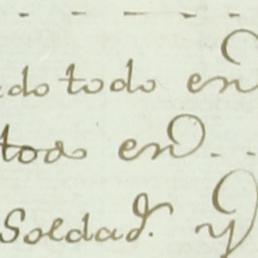 do todo en
todo en
Soldad.ᵉ y